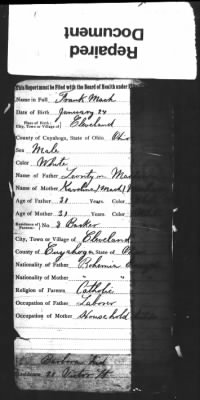 Repaired
Document
This Report must be Filed with the Board of Health under
Name in Full Frank Mach
Date of Birth January 24
Place of Birth:
City, Town or Village of Cleveland
County of Cuyahoga, State of Ohio
Sex Male
Color White
Name of Father
Name of Mother Karoline (Mach)
Age of Father 31 Years. Color
Age of Mother 31 Years. Color
Residence of Parents: No 3 Barker
City, Town or Village of Cleveland
County of Cuyahoga State of
Nationality of Father Bohemia
Nationality of Mother " "
Religion of Parents Catholic
Occupation of Father Laborer
Occupation of Mother Household
Barbora
Residence